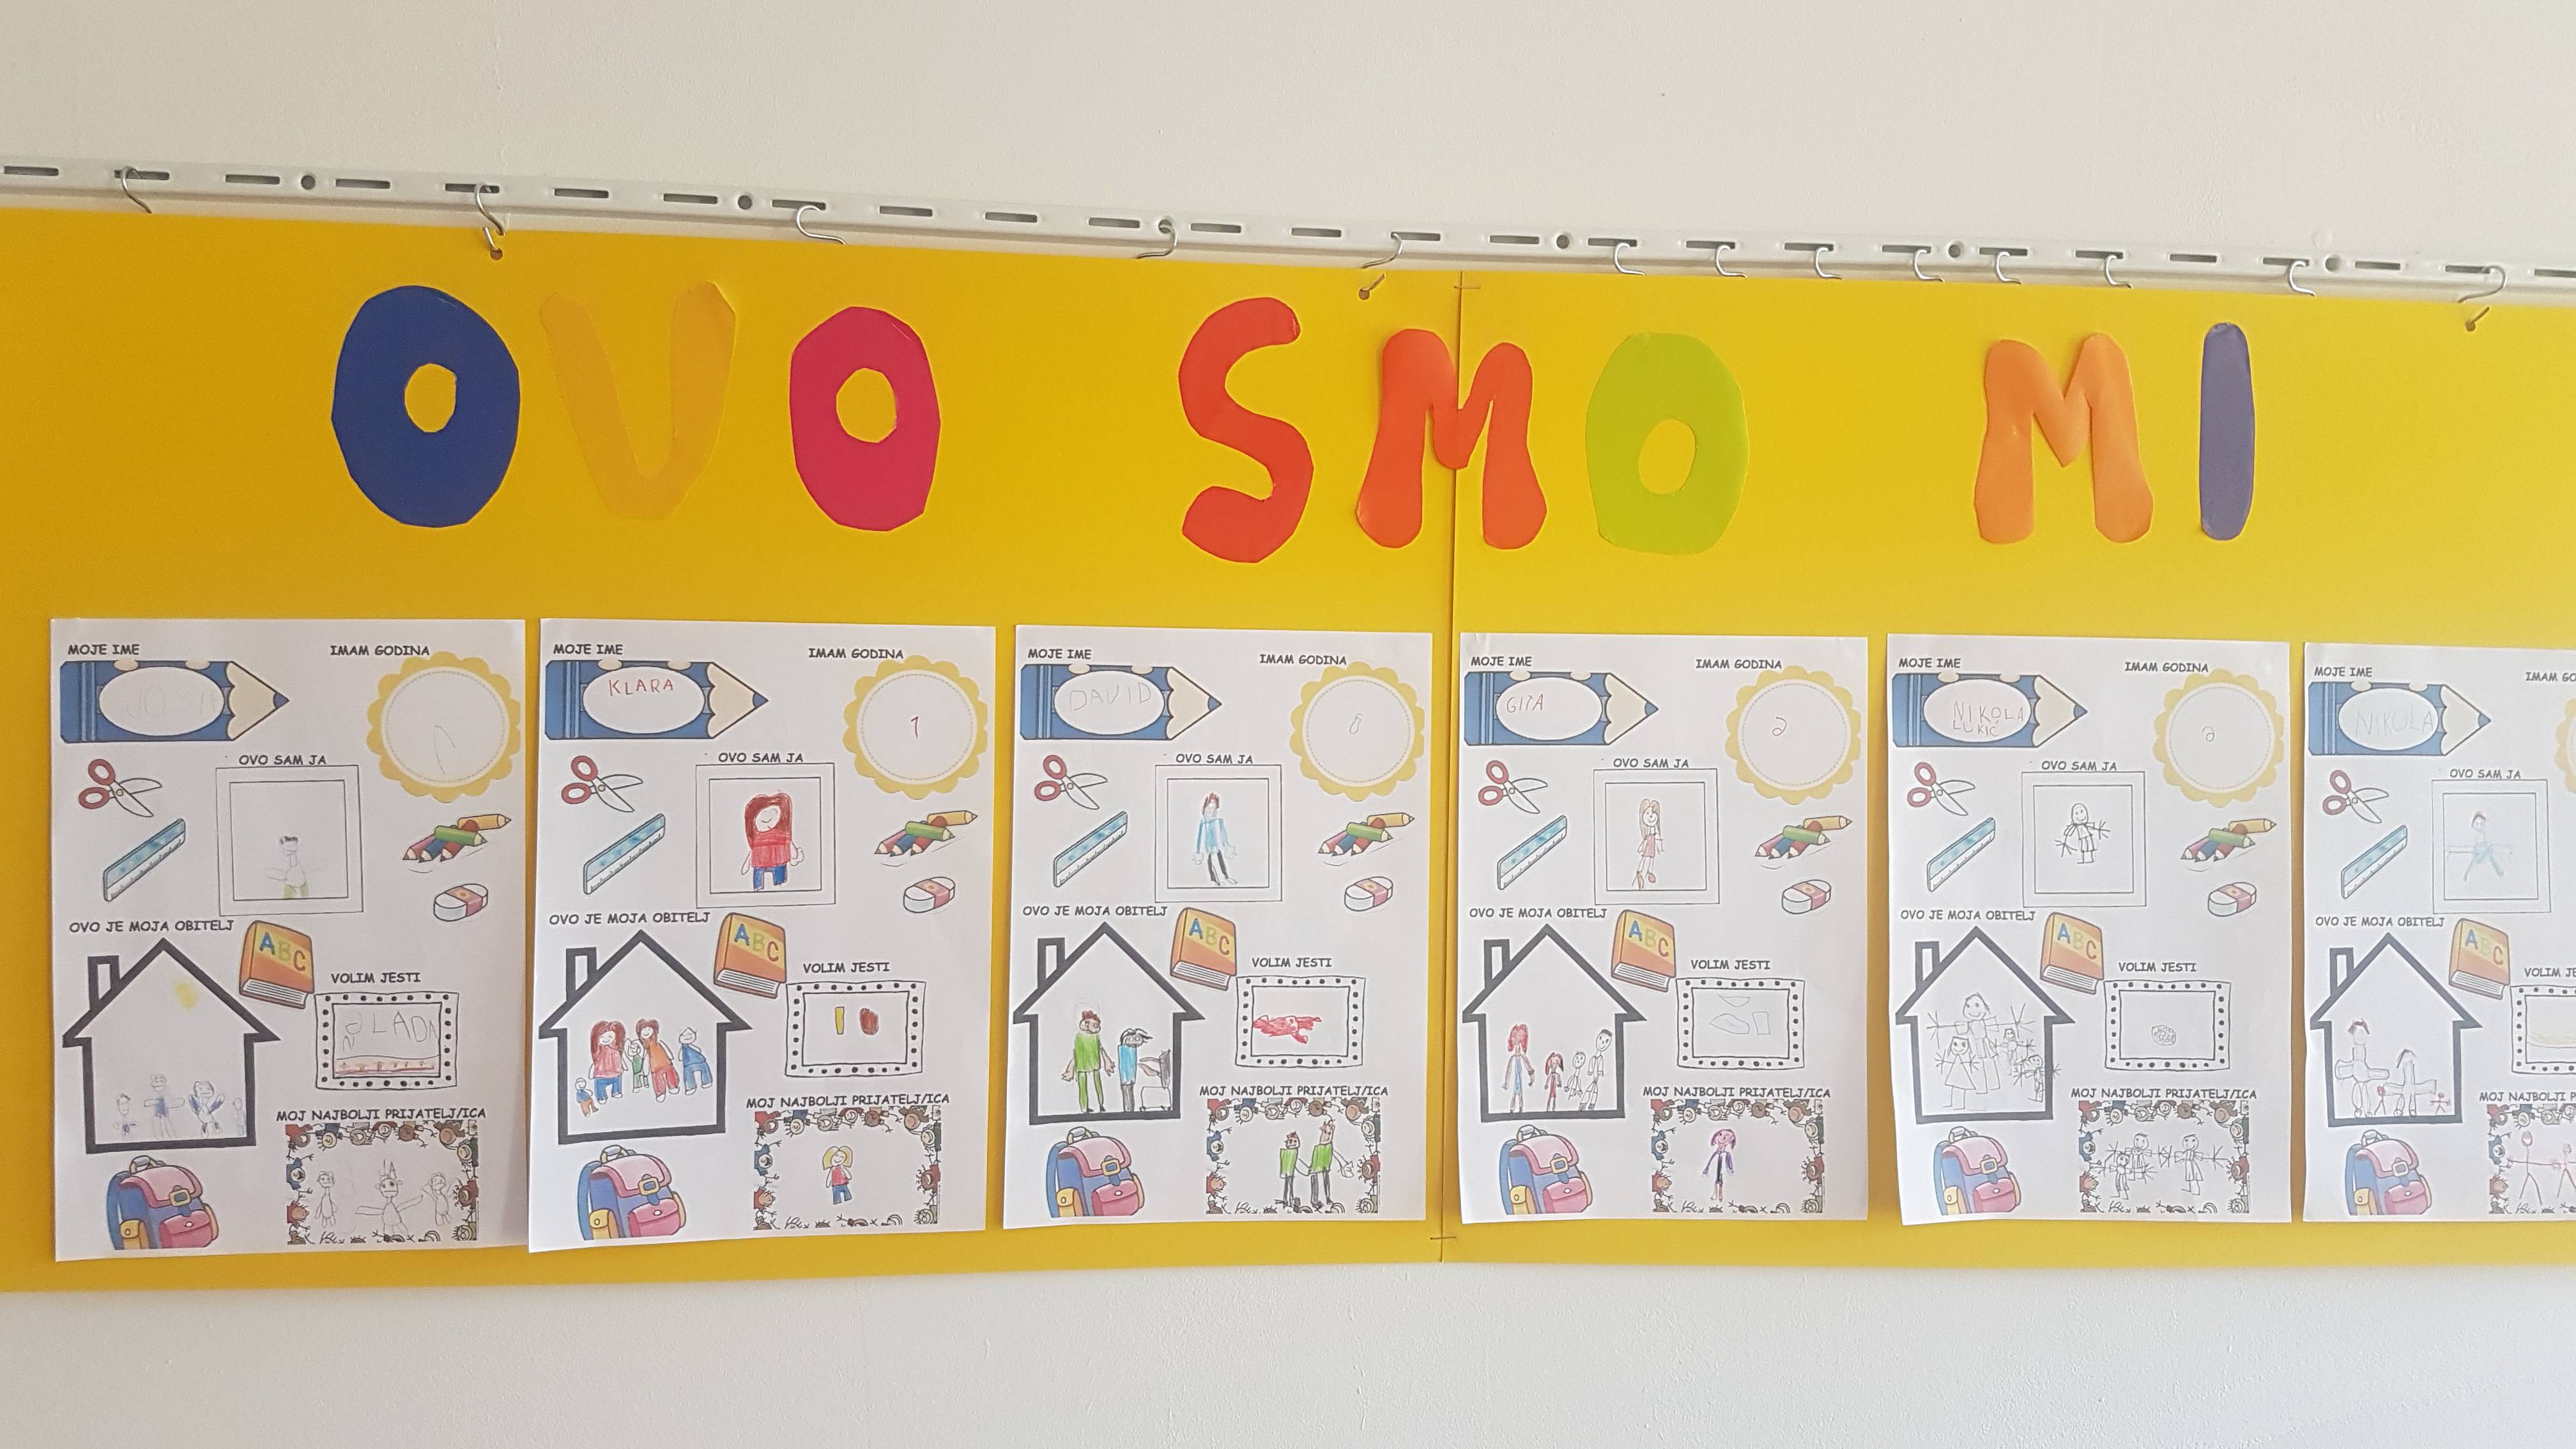 OVO SMO MI
MOJE IME
IMAM GODINA
OVO SAM JA
OVO JE MOJA OBITELJ
ABC
VOLIM JESTI
MOJ NAJBOLJI PRIJATELJ/ICA
MOJE IME
IMAM GODINA
KLARA
1
OVO SAM JA
OVO JE MOJA OBITELJ
ABC
VOLIM JESTI
MOJ NAJBOLJI PRIJATELJ/ICA
MOJE IME
IMAM GODINA
DAVID
OVO SAM JA
OVO JE MOJA OBITELJ
ABC
VOLIM JESTI
MOJ NAJBOLJI PRIJATELJ/ICA
MOJE IME
IMAM GODINA
GITA
OVO SAM JA
OVO JE MOJA OBITELJ
ABC
VOLIM JESTI
MOJ NAJBOLJI PRIJATELJ/ICA
MOJE IME
IMAM GODINA
NIKOLA
LUKIĆ
OVO SAM JA
OVO JE MOJA OBITELJ
ABC
VOLIM JESTI
MOJ NAJBOLJI PRIJATELJ/ICA
MOJE IME
IMAM
NIKOLA
OVO SAM JA
OVO JE MOJA OBITELJ
ABC
VOLIM
MOJ NAJBOLJI